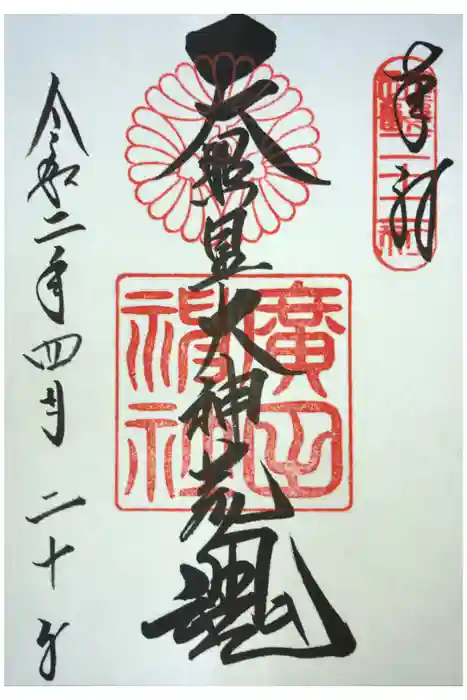 奉拝
天照皇大神荒魂
廣田神社
令和二年四月二十日